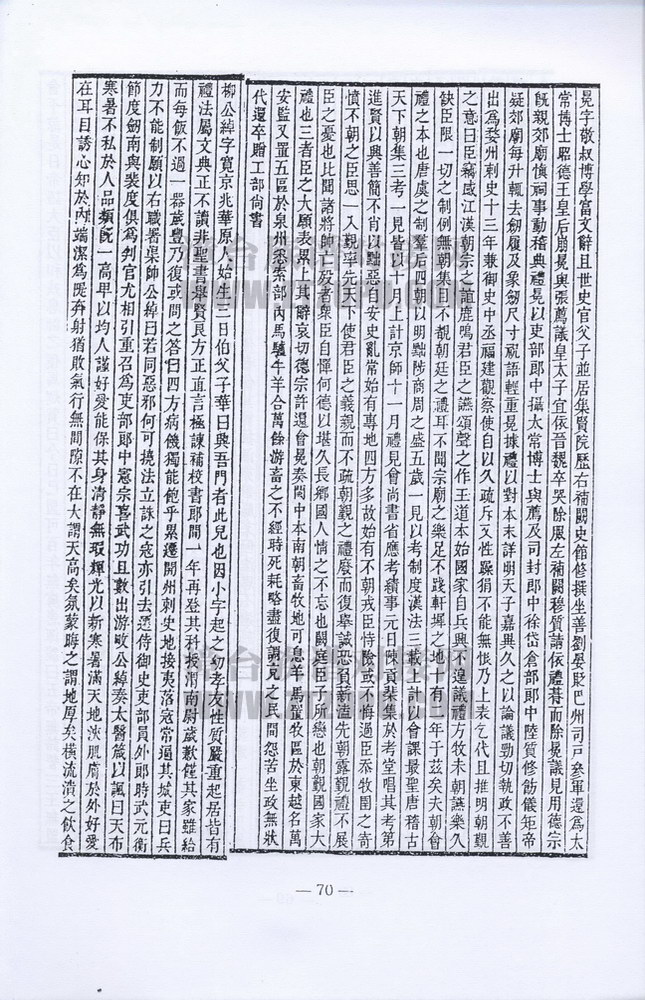 冕字敬叔博學富文辭且世史官父子並居集賢院歷右補闕史館修撰坐善劉晏貶巴州司戶參軍還爲太
常博士昭德王皇后崩冕與張薦議皇太子宜依晉魏卒哭除服左補闕穆質請依禮朞而除冕議見用德宗
旣親郊廟愼祠事動稽典禮冕以吏部郎中攝太常博士與薦及司封郎中徐岱倉部郎中陸質修飭儀矩帝
疑郊廟每升輒去劒履及象劒尺寸祝語輕重冕據禮以對本末詳明天子嘉異久之以論議勁切執政不善
出爲婺州刺史十三年兼御史中丞福建觀察使自以久疏斥又性躁狷不能無恨乃上表乞代且推明朝覲
之意曰臣竊感江漢朝宗之誼鹿鳴君臣之讌頌聲之作王道本始國家自兵興不遑議禮方牧未朝讌樂久
缺臣限一切之制例無朝集目不覩朝廷之禮耳不聞宗廟之樂足不踐軒墀之地十有二年于茲矣夫朝會
禮之本也唐虞之制羣后四朝以明黜陟商周之盛五歲一見以考制度漢法三載上計以會課最聖唐稽古
天下朝集三考一見皆以十月上計京師十一月禮見會尚書省應考績事元日陳貢棐集於考堂唱其考第
進賢以興善簡不肖以黜惡自安史亂常始有專地四方多故始有不朝戎臣恃險或不悔過臣忝牧圉之寄
憤不朝之臣思一入覲率先天下使君臣之義親而不疏朝覲之禮廢而復舉誠恐負薪溘先朝露覲禮不展
臣之憂也比聞諸將帥亡歿者衆臣自憚何德以堪久長鄉國人情之不忘也闕庭臣子所戀也朝覲國家大
禮也三者臣之大願表累上其辭哀切德宗許還會冕奏閩中本南朝畜牧地可息羊馬置牧區於東越名萬
安監又置五區於泉州悉索部內馬驢牛羊合萬餘游畜之不經時死耗略盡復調充之民間怨苦坐政無狀
代還卒贈工部尚書
柳公綽字寬京兆華原人始生三日伯父子華曰興吾門者此兒也因小字起之幼孝友性質嚴重起居皆有
禮法屬文典正不讀非聖書舉賢良方正直言極諫補校書郎間一年再登其科授渭南尉歲歉饉其家雖給
而每飯不過一器歲豐乃復或問之答曰四方病饑獨能飽乎累遷開州刺史地接夷落寇常逼其城吏曰兵
力不能制願以右職署渠帥公綽曰若同惡邪何可撓法立誅之寇亦引去遷侍御史吏部員外郎時武元衡
節度劒南與裴度俱爲判官尤相引重召爲吏部郎中憲宗喜武功且數出游畋公綽奏太醫箴以諷曰天布
寒暑不私於人品類旣一高卑以均人謹好愛能保其身清靜無瑕輝光以新寒暑滿天地浹肌膚於外好愛
在耳目誘心知於內端潔爲隄奔射猶敗氣行無間隙不在大謂天高矣氛蒙晦之謂地厚矣橫流潰之飲食
— 70 —